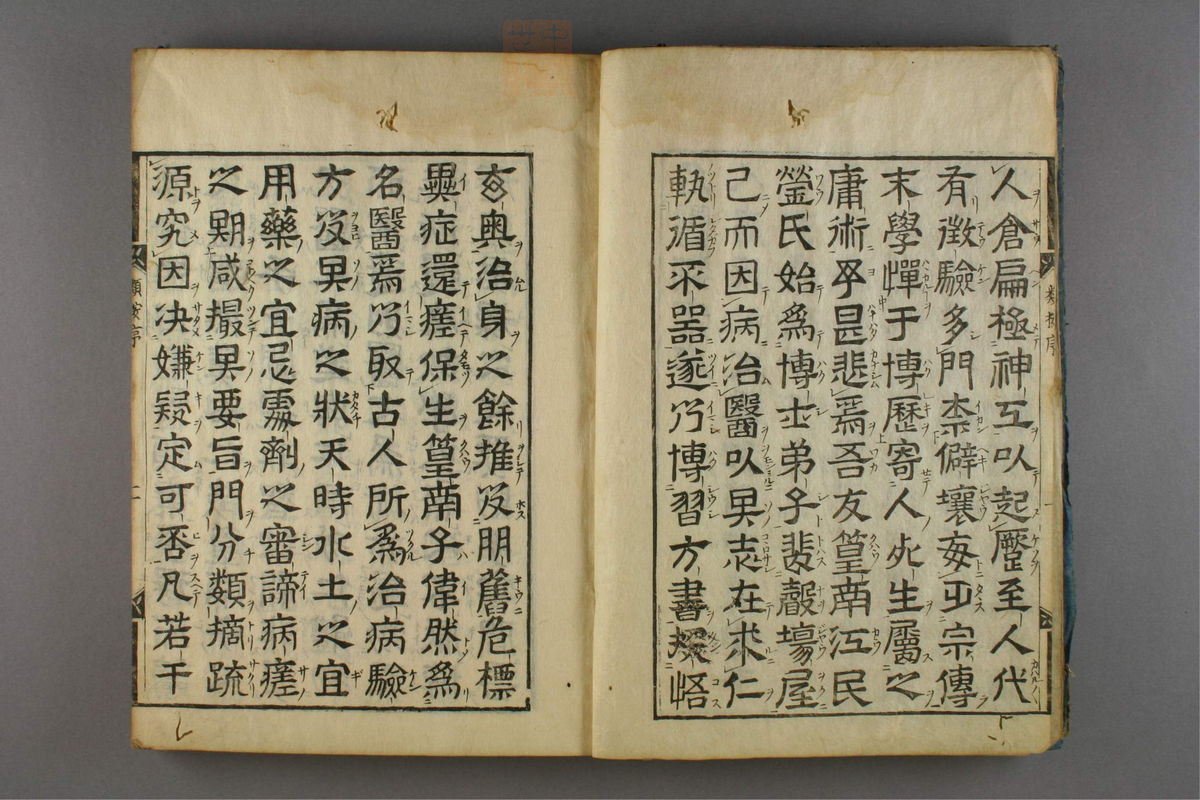 類按序 一
人倉扁極神工以起至人代
有徵驗多門柰僻壤每乏宗傳
末學憚于博歷寄人死生屬之
庸術予甚悲焉吾友篁南江民
瑩氏始爲博士弟子蜚聲塲屋
己而因病治醫以其志在求仁
執循噐遂乃博習方書探悟
玄奧治身之餘推及朋舊危標
異症還瘥保生篁南子偉然爲
名醫焉乃取古人所爲治病驗
方及其病之狀天時水土之宜
用藥之宜忌處劑之審諦病瘥
之期咸撮其要旨門分類摘疏
源究因决嫌疑定可否凡若干
類按序 二